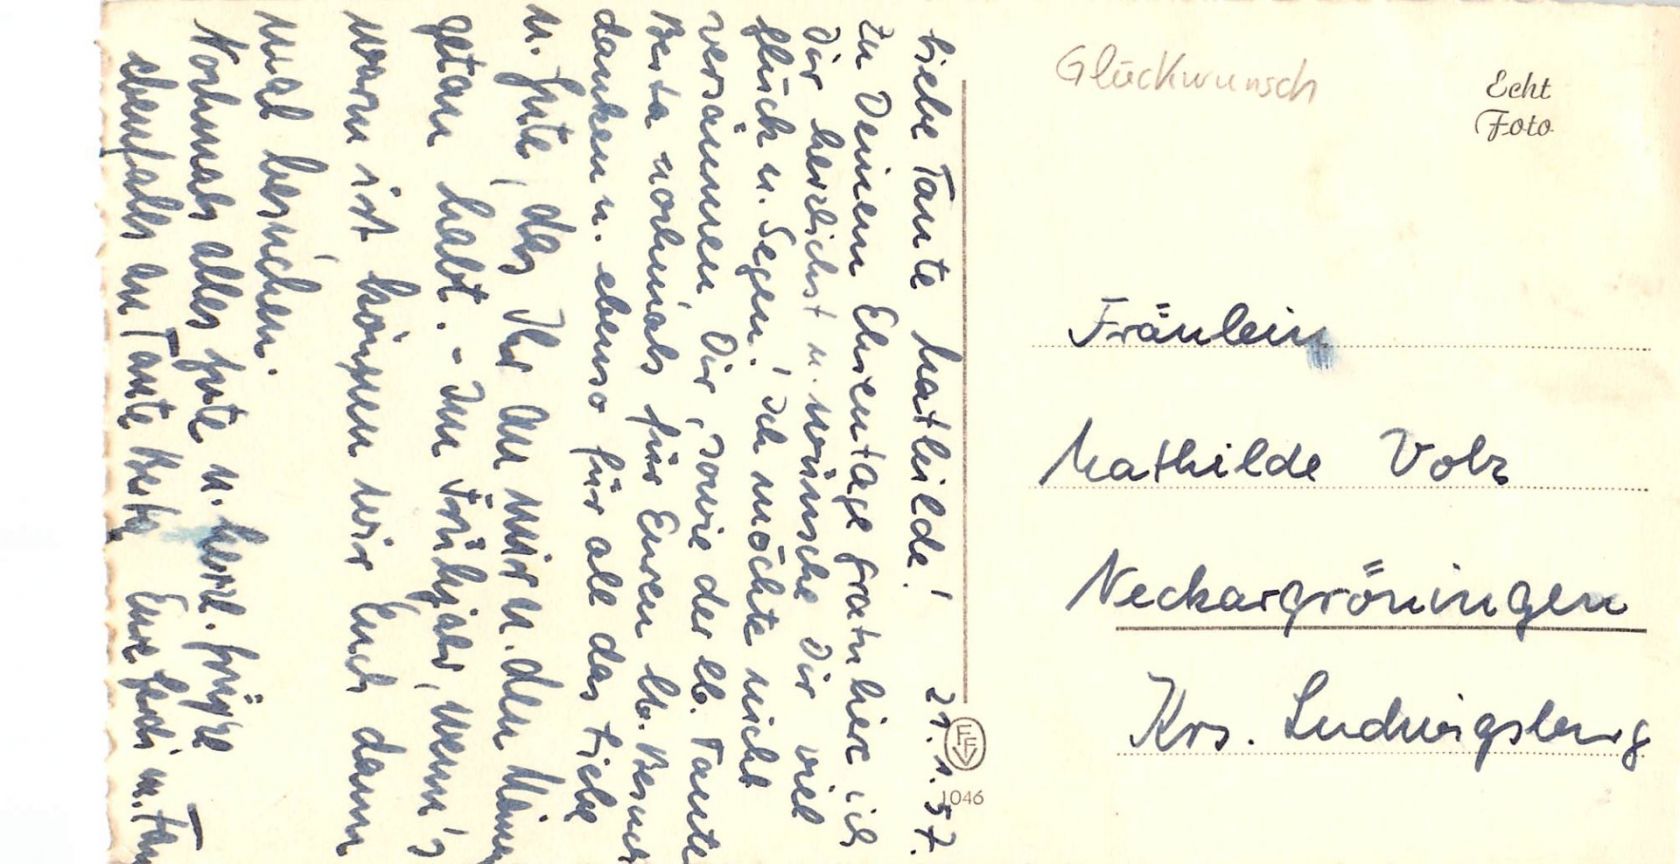 Liebe Tante Mathilde! 21.1.57.
Zu Deinem Ehrentage gratuliere ich
Dir herzlichst u. wünsche Dir viel
Glück u. Segen. Ich möchte nicht
versäumen Dir, sowie der lb. Tante
Berta nochmals für Euren lb. Besuch
danken u. ebenso für all das Liebe
u. Gute, das Ihr an mir u. den
getan habt. - Im Frühjahr, wenn's
warm ist können wir Euch dann
mal besuchen.
Nochmals alles Gute u. herzl. Grüsse
ebenfalls an Tante Berta Eure u.
EFV
1046
Glückwunsch
Echt
Foto
Fräulein
Mathilde Volz
Neckargröningen
Krs. Ludwigsburg